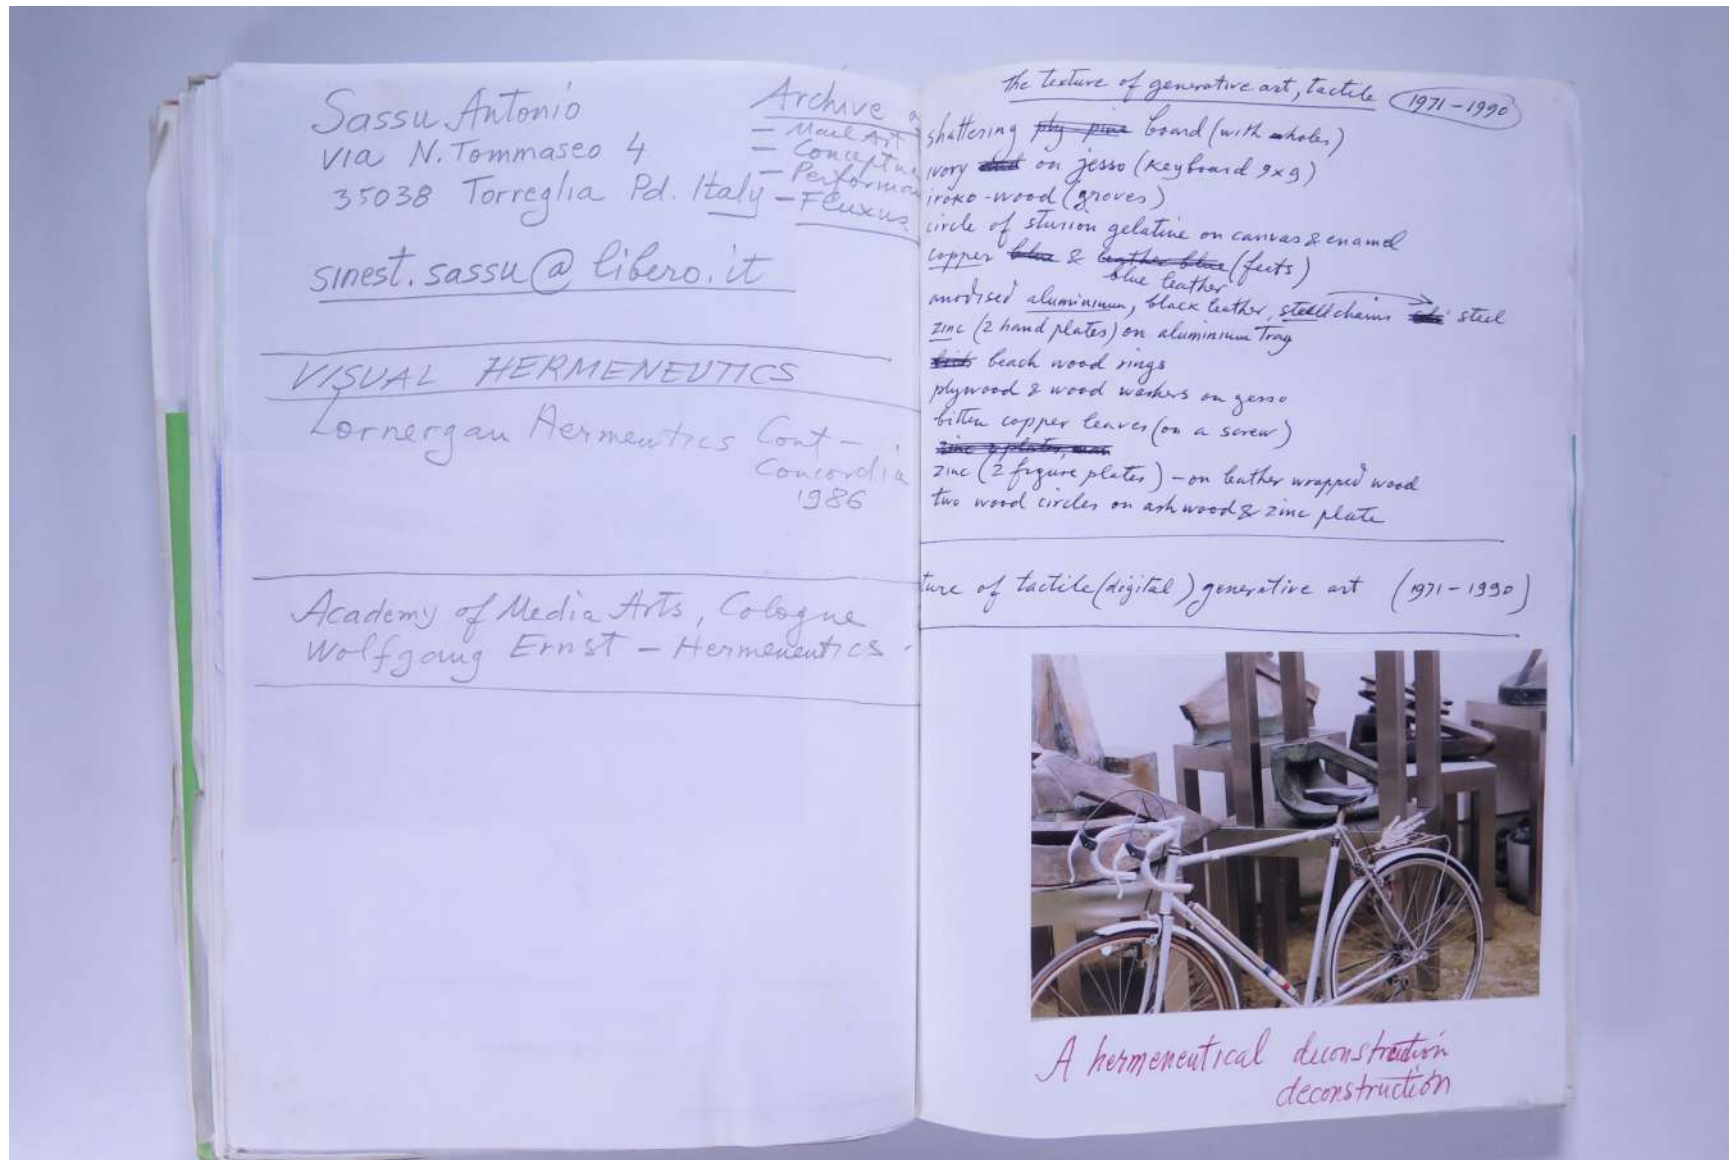 Sassu Antonio
via N. Tommaseo 4
35038 Torreglia Pd. Italy
Archive
– Mail Art
– Conceptu
– Performan
– Fluxus.
sinest.sassu@libero.it
VISUAL HERMENEUTICS
Lornergan Hermeutics Cont –
Concordia
1986
Academy of Media Arts, Cologne
Wolfgang Ernst – Hermeneutics.
the texture of generative art, tactile 1971–1990
shattering ply pine board (with wholes)
ivory on jesso (keyboard 9x9)
iroko-wood (groves)
circle of sturion gelatine on canvas & enamel
copper blue & leather blue (feets)
blue leather
anodised alumininum, black leather, steell chains steel
zinc (2 hand plates) on aluminium Tray
beach wood rings
plywood & wood washers on gesso
bitten copper leaves (on a screw)
zinc 2 plates,
zinc (2 figure plates) – on leather wrapped wood
two wood circles on ash wood & zinc plate
ture of tactile (digital) generative art (1971–1990)
A hermeneutical deconstruction
deconstruction